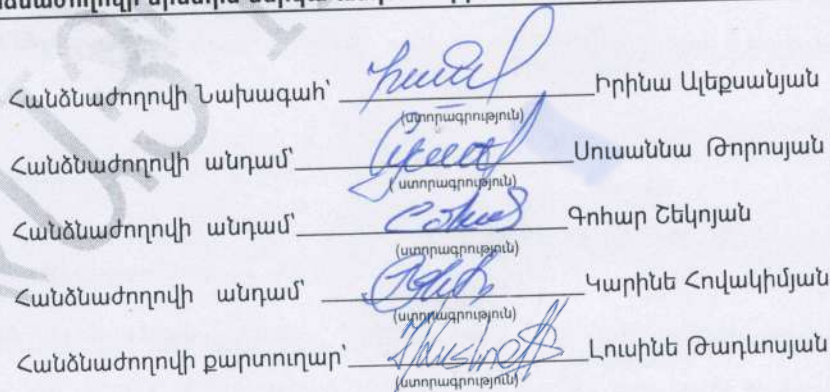 Հանձնաժողովի Նախագահ՝ Իրինա Ալեքսանյան
(ստորագրություն)
Հանձնաժողովի անդամ՝ Սուսաննա Թորոսյան
(ստորագրություն)
Հանձնաժողովի անդամ՝ Գոհար Շեկոյան
(ստորագրություն)
Հանձնաժողովի անդամ՝ Կարինե Հովակիմյան
(ստորագրություն)
Հանձնաժողովի քարտուղար՝ Լուսինե Թադևոսյան
(ստորագրություն)